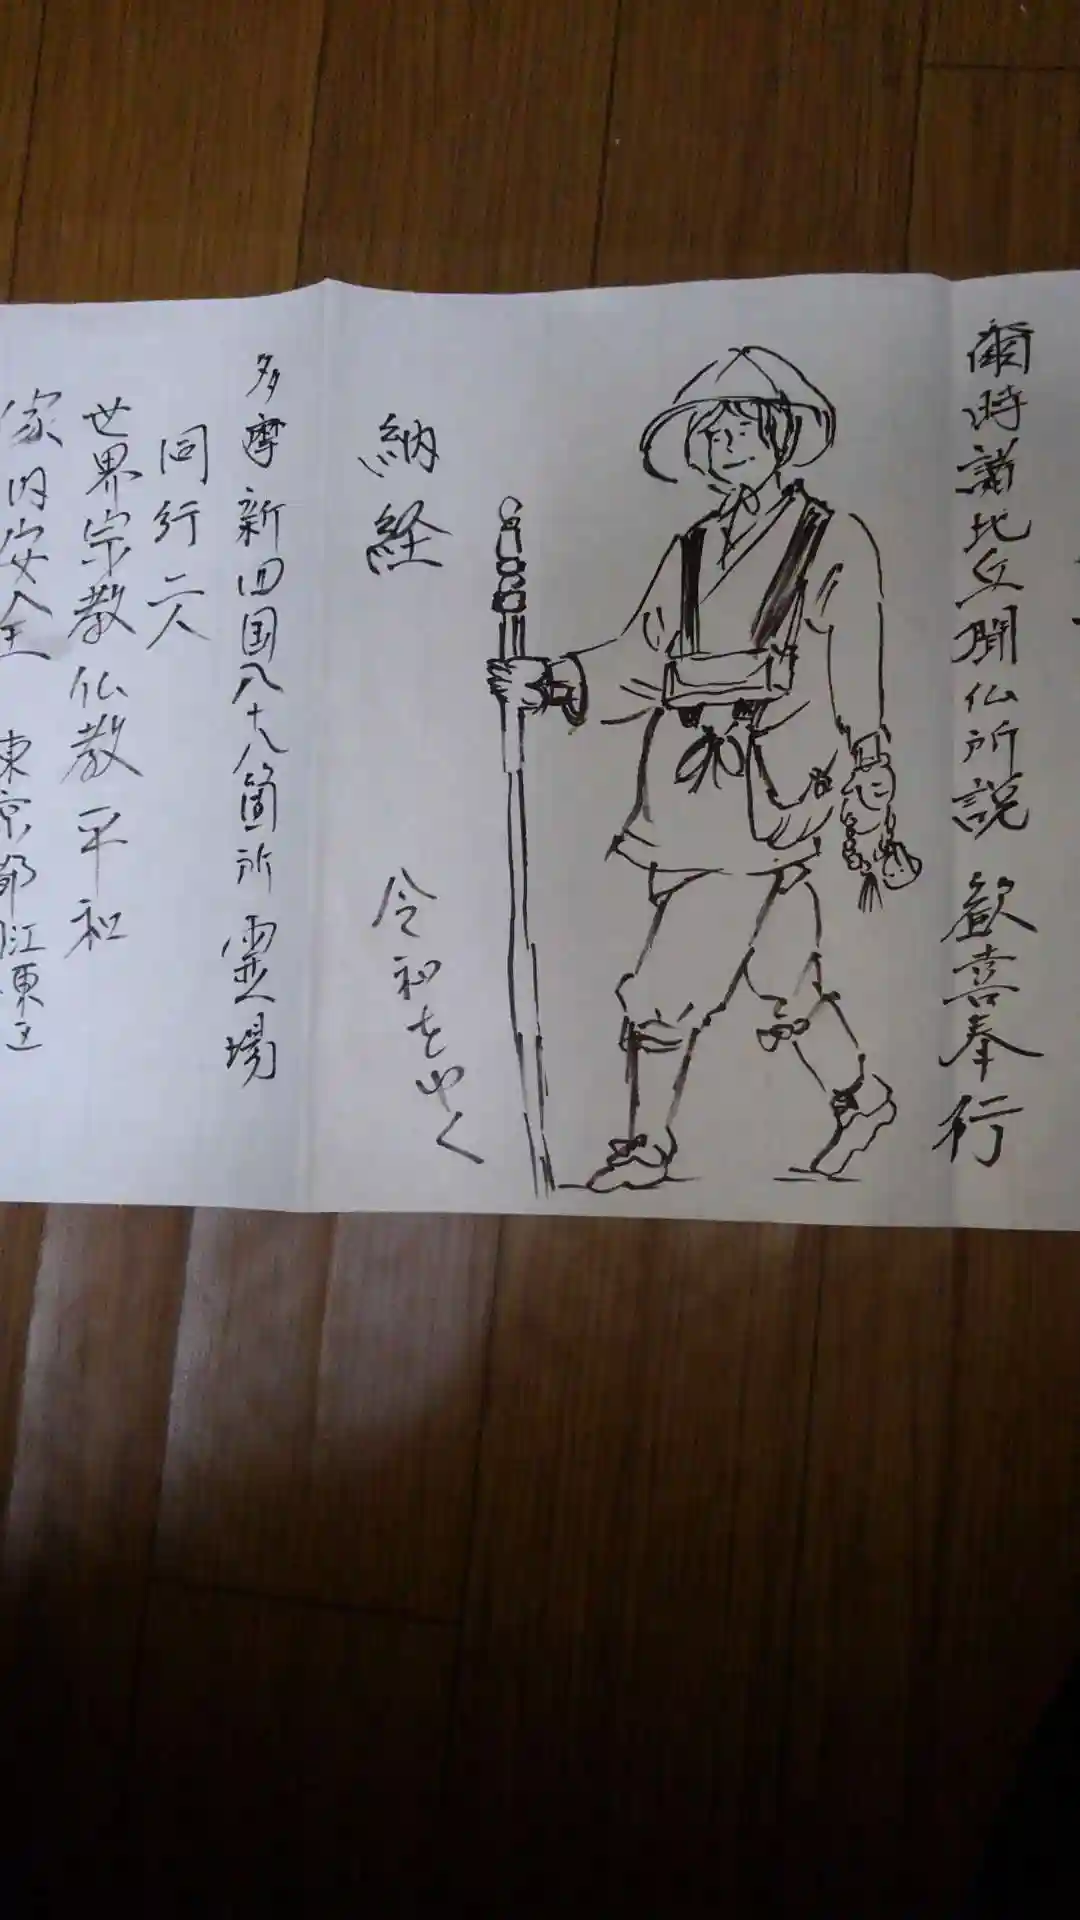 爾時諸比丘聞仏所説 歓喜奉行
納経 令和をゆく
多摩新四国八十八箇所霊場
同行二人
世界宗教仏教平和
家内安全 東京都江東区